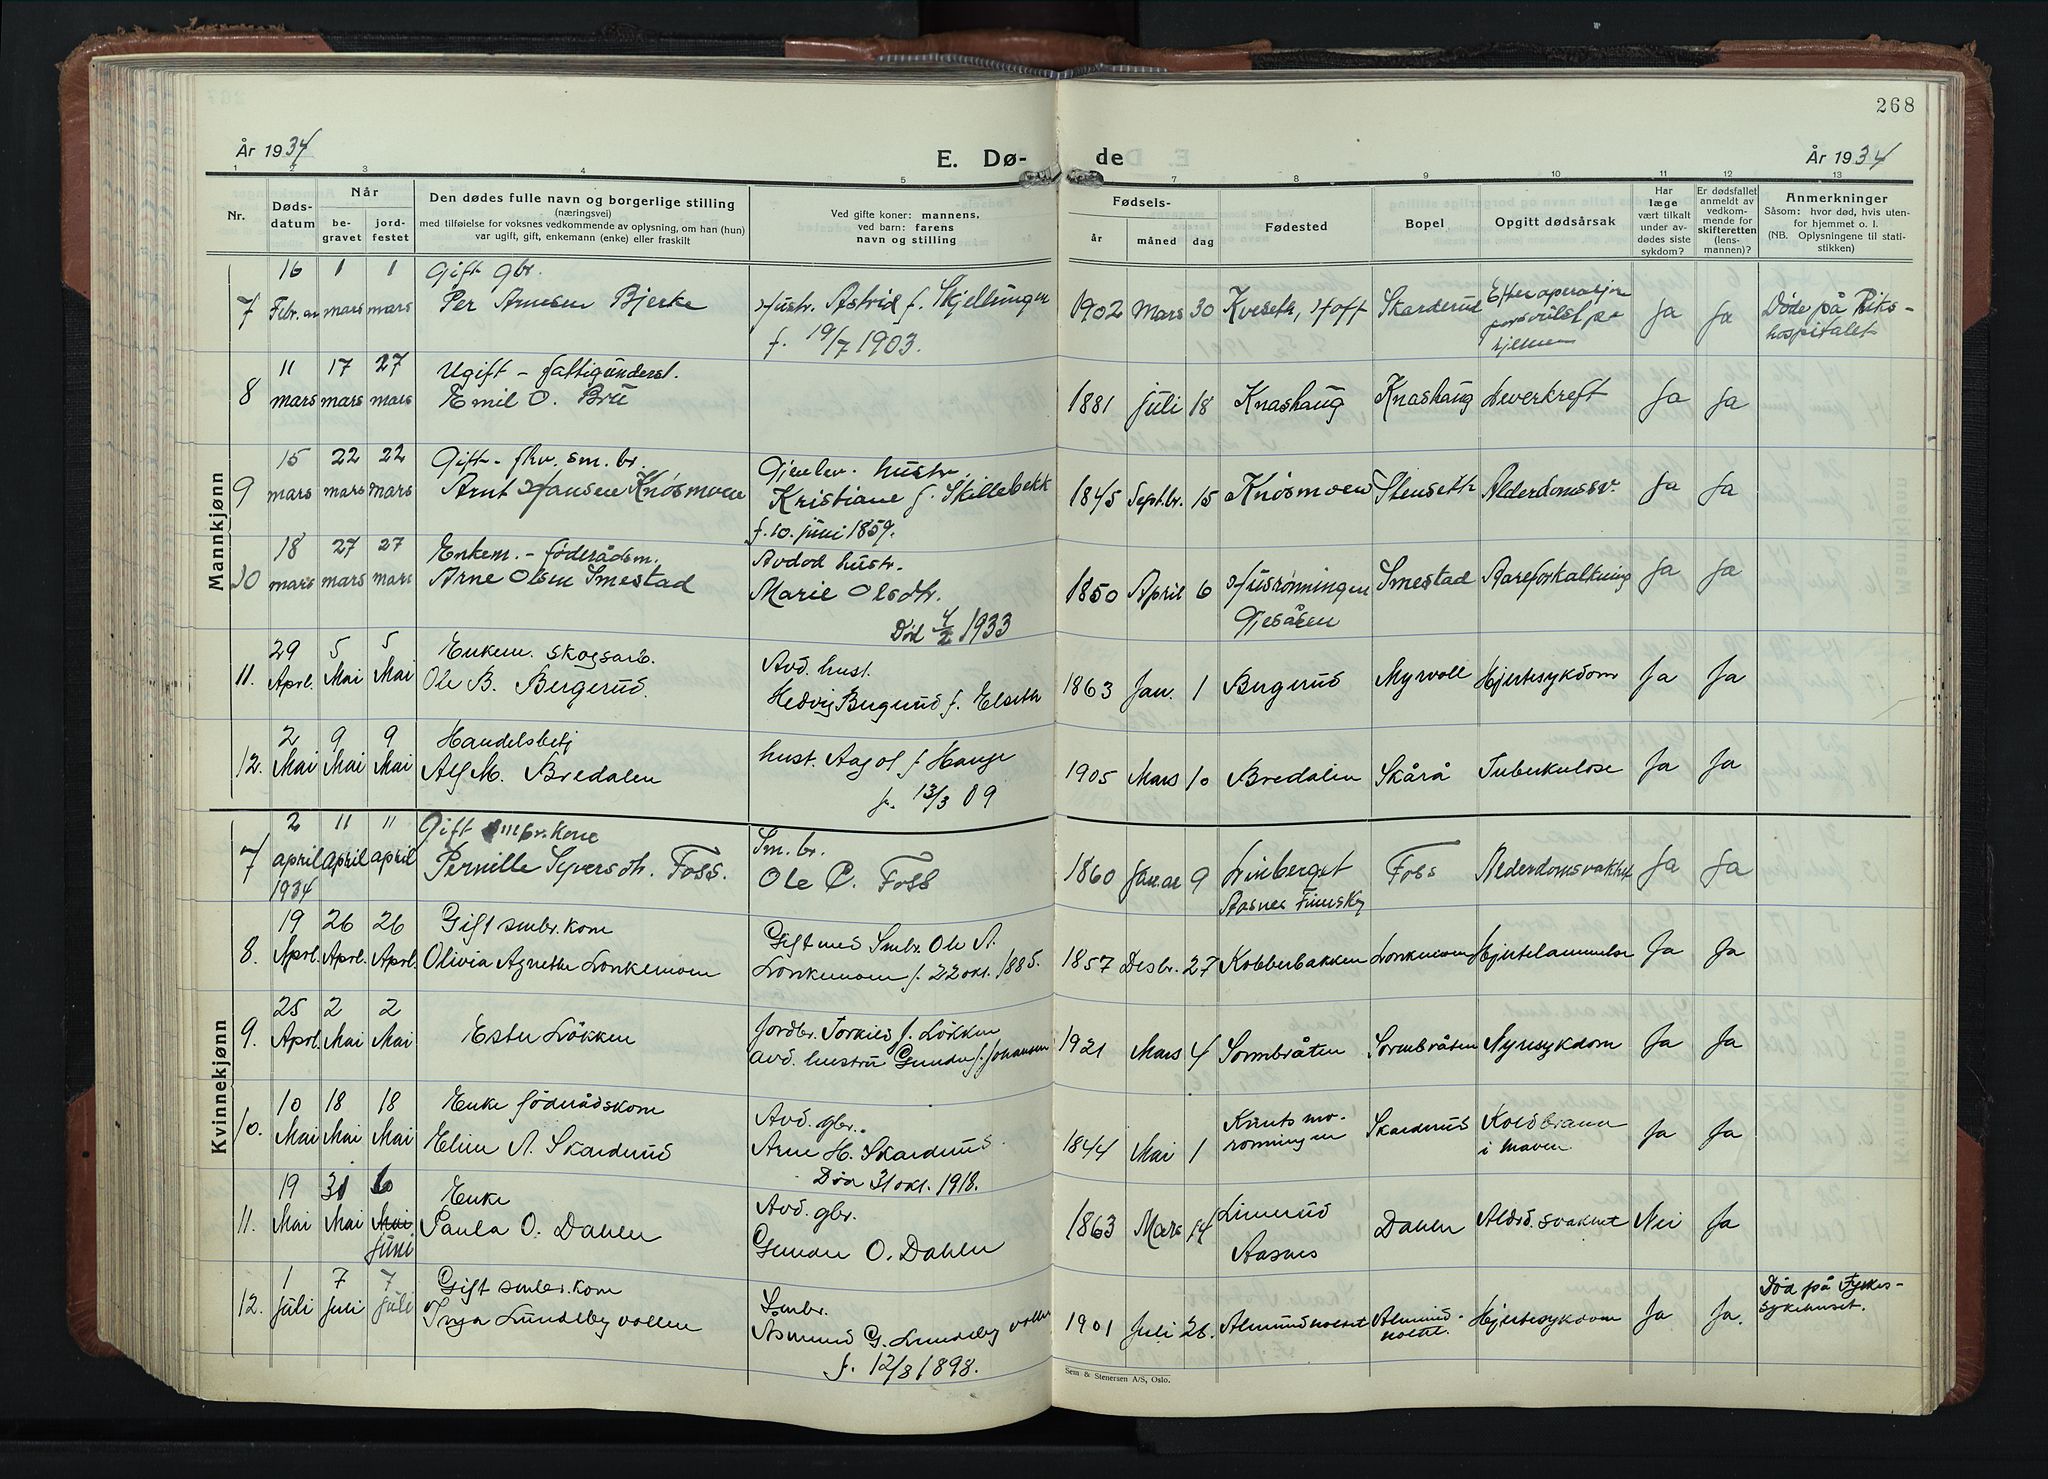 268
År 1934
E. Dø-
de
År 1934
1 2 3 4 5 7 8 9 10 11 12 13
Nr.
Døds-
datum
Når
be-
gravet
jord-
festet
Den dødes fulle navn og borgerlige stilling
(næringsvei)
med tilføielse for voksnes vedkommende av oplysning, om han (hun)
var ugift, gift, enkemann (enke) eller fraskilt
Ved gifte koner: mannens,
ved barn: farens
navn og stilling
Fødsels-
år måned dag
Fødested
Bopel
Opgitt dødsårsak
Har
læge
vært tilkalt
under av-
dødes siste
sykdom?
Er dødsfallet
anmeldt av
vedkom-
mende for
skifteretten
(lens-
mannen)?
Anmerkninger
Såsom: hvor død, hvis uten-
for hjemmet o. l.
(NB. Oplysningene til stati-
stikken)
Mannkjønn
16 1 1 Gift gbr.
7 Febr. mars mars Per Arnesen Bjerke Hustr. Astrid f. Skjellungen 1902 Mars 30 Kveseth, Hoff Skarderud Efter operasjon Ja Ja Døde på Riks-
f. 19/7 1903. hospitalet
11 17 27 Ugift - fattigunderst.
8 mars mars mars Emil O. Bru 1881 juli 18 Knashaug Knashaug Leverkreft Ja Ja
15 22 22 Gift - fhv. sm.br. Gjenlev. hustr.
9 mars mars mars Arnt Hansen Knösmoen Kristiane f. Skillebekk 1845 Septbr. 15 Knösmoen Stenseth Alderdomssv. Ja Ja
f. 10. juni 1859.
18 27 27 Enkem. - föderådsm. Avdød hustr.
10 mars mars mars Arne Olsen Smestad Marie Olsdtr. 1850 April 6 Husrønningen Smestad Aareforkalkning Ja Ja
Død 4/2 1933 Gjesåsen
29 5 5 Enkem. skogsarb. Avd. hust.
11. Aprl. Mai Mai Ole B. Bergerud. Hedvig Bergerud f. Elseth 1863 Jan. 1 Bergerud Myrvoll Hjertesykdom Ja Ja
2 9 9 Handelsbetj
12. Mai Mai Mai Alf M. Bredalen hust. Aagot f. Hauge 1905 Mars 10 Bredalen Skårå Tuberkulose Ja Ja
f. 13/3 09
Kvinnekjønn
2 11 11 Gift smbr.kone Sm. br.
7 april april april Pernille Syversdtr. Foss. Ole C. Foss 1860 Januar 9 Linberget Foss Alderdomsvakhet Ja Ja
1934 Aasnes Finnskg
19 26 26 Gift smbr.kone Gift med Smbr. Ole A.
8. Aprl. Aprl. Aprl. Olivia Agnethe Lonkemoen Lonkemoen f. 22 okt. 1885. 1857 Desbr. 27 Kobberbakken Lonkemoen Hjertelammelse Ja Ja
25 2 2 Jordbr. Torkild J. Løkken
9. Aprl. Mai Mai Ester Løkken avd. hustru Gunda f. Johansen 1921 Mars 4 Sormbråten Sormbråten Nyresykdom Ja Ja
10 18 18 Enke föderådskone Avd. gbr. Knutsmo- Koldbrann
10. Mai Mai Mai Eline A. Skarderud Arne H. Skarderud. 1844 Mai 1 rønningen Skarderud i maven Ja Ja
Död 31 okt. 1918.
19 31 6 Enke Avd. gbr. Linnerud
11. Mai Mai Mai Paula O. Dahlen Gunder O. Dahlen 1863 Mars 14 Aasnes Dahlen Alderd. svakhet Nei Ja
juni
1 7 7 Gift smbr.kone Smbr. Död på Fylkes-
12. juli juli juli Inga Lundebyvollen Asmund G. Lundebyvollen 1901 Juli 26. Almundholtet Almund- Hjertesykdom Ja Ja. sykehuset.
f. 12/8 1898. holtet
Sem & Stenersen A/S, Oslo.